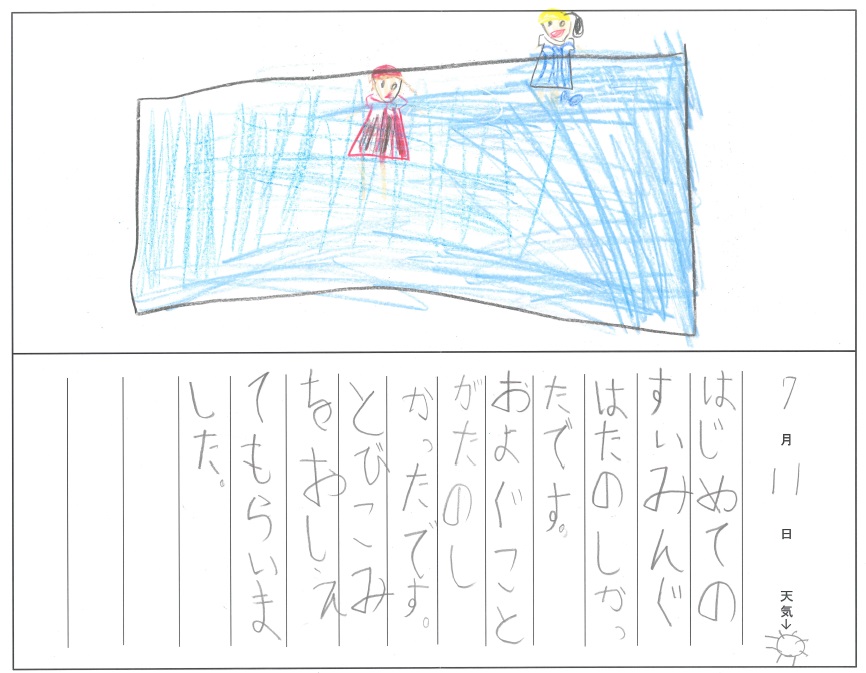 7月11日 天気→
はじめての
すいみんぐ
はたのしかっ
たです。
およぐこと
がたのし
かったです。
とびこみ
をおしえ
てもらいま
した。